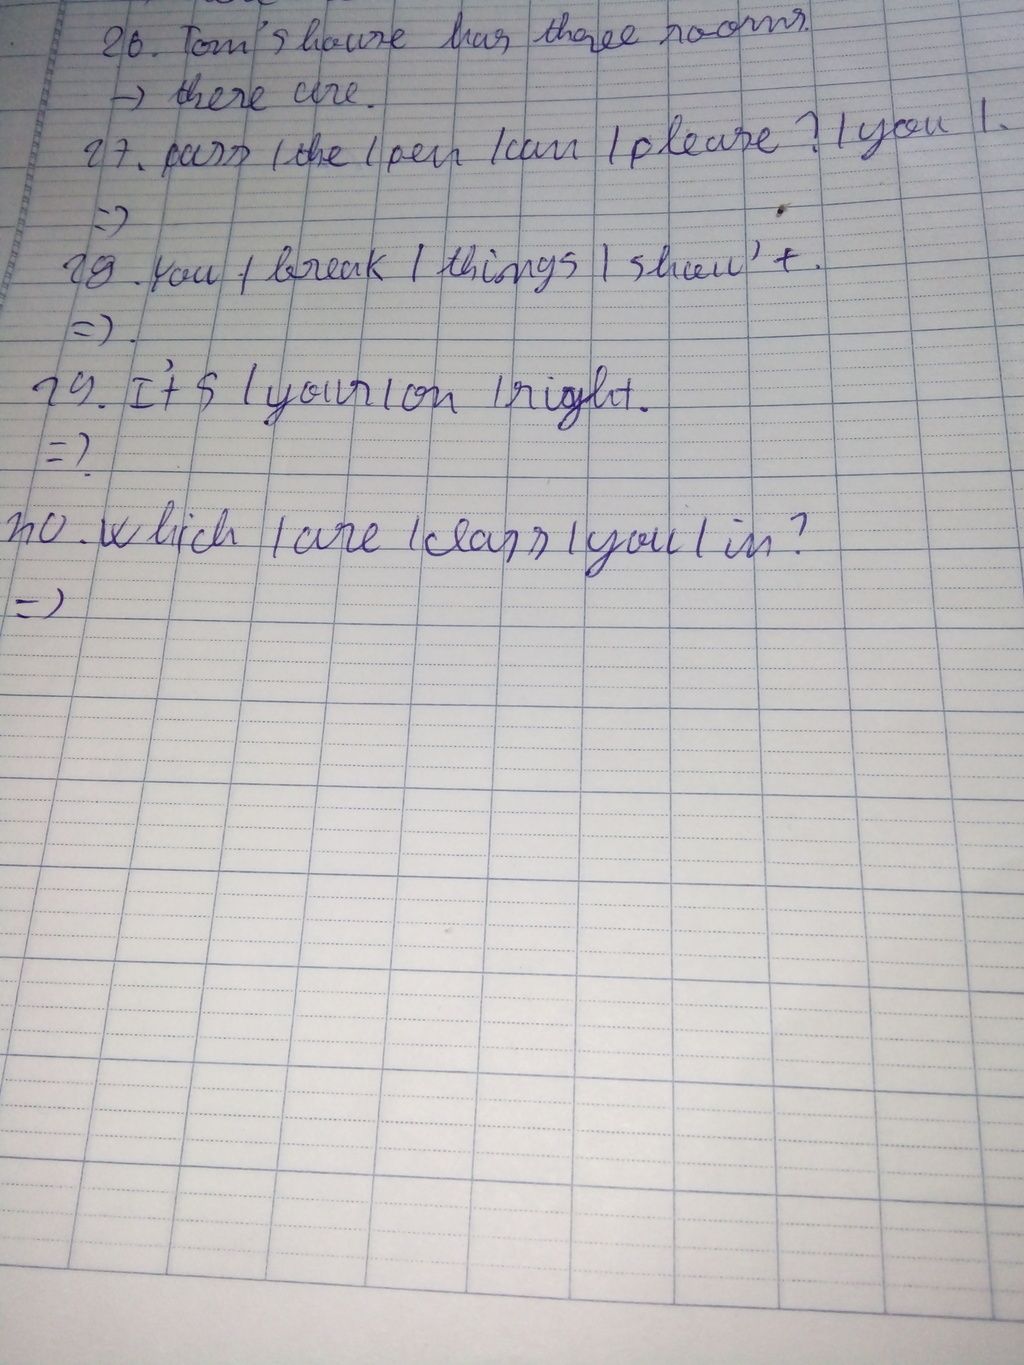 26. Tom's house has three rooms.
→ there are.
27. pass / the / pen / can / please ? / you / .
=>
28. You / break / things / shou't.
=> .
29. It's / your / on / right.
=> .
30. which / are / class / you / in ?
=>